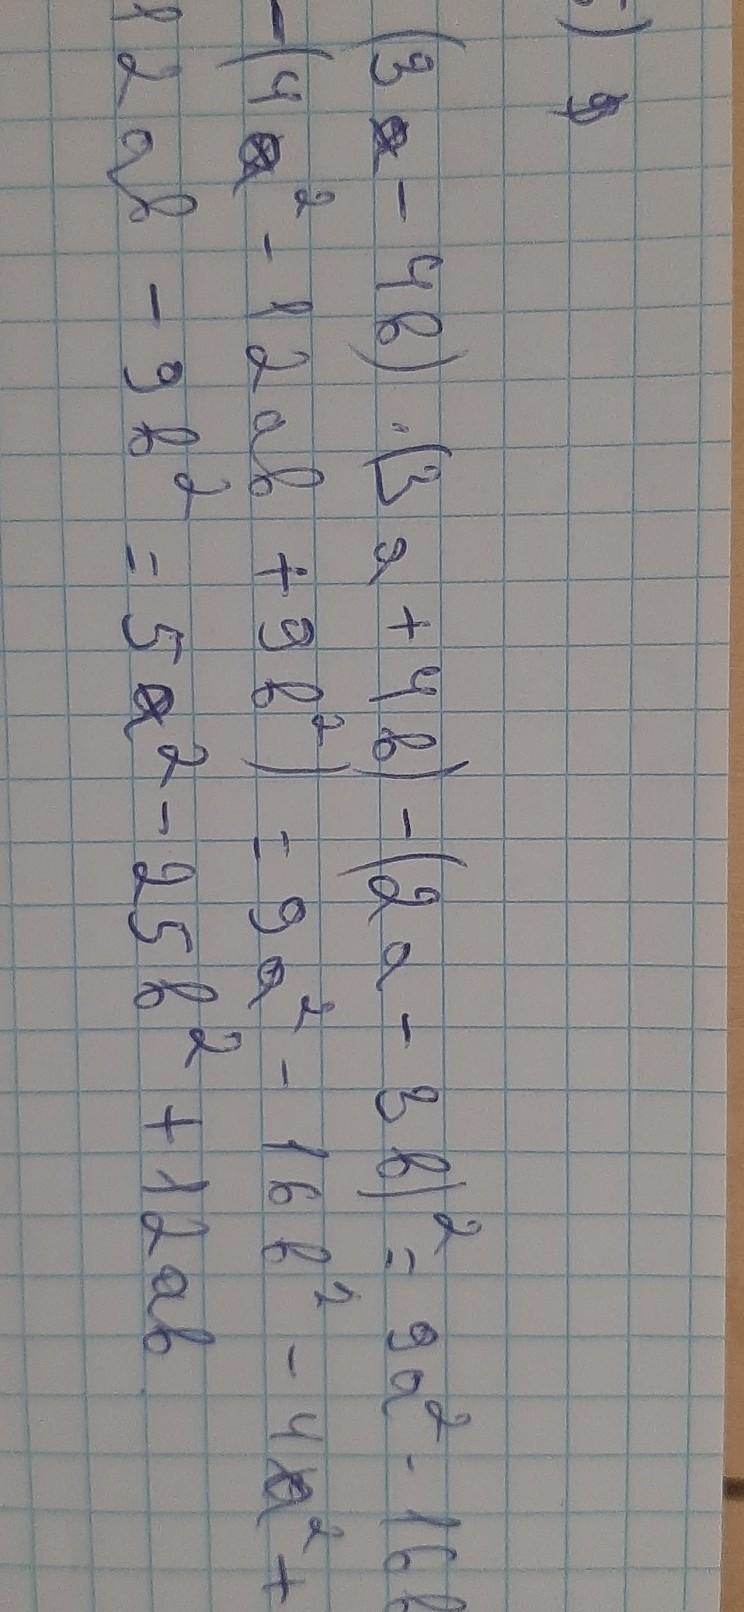 (3a - 4b) · (3a + 4b) - (2a - 3b)² = 9a² - 16b
- (4a² - 12ab + 9b²) = 9a² - 16b² - 4a² +
12ab - 9b² = 5a² - 25b² + 12ab